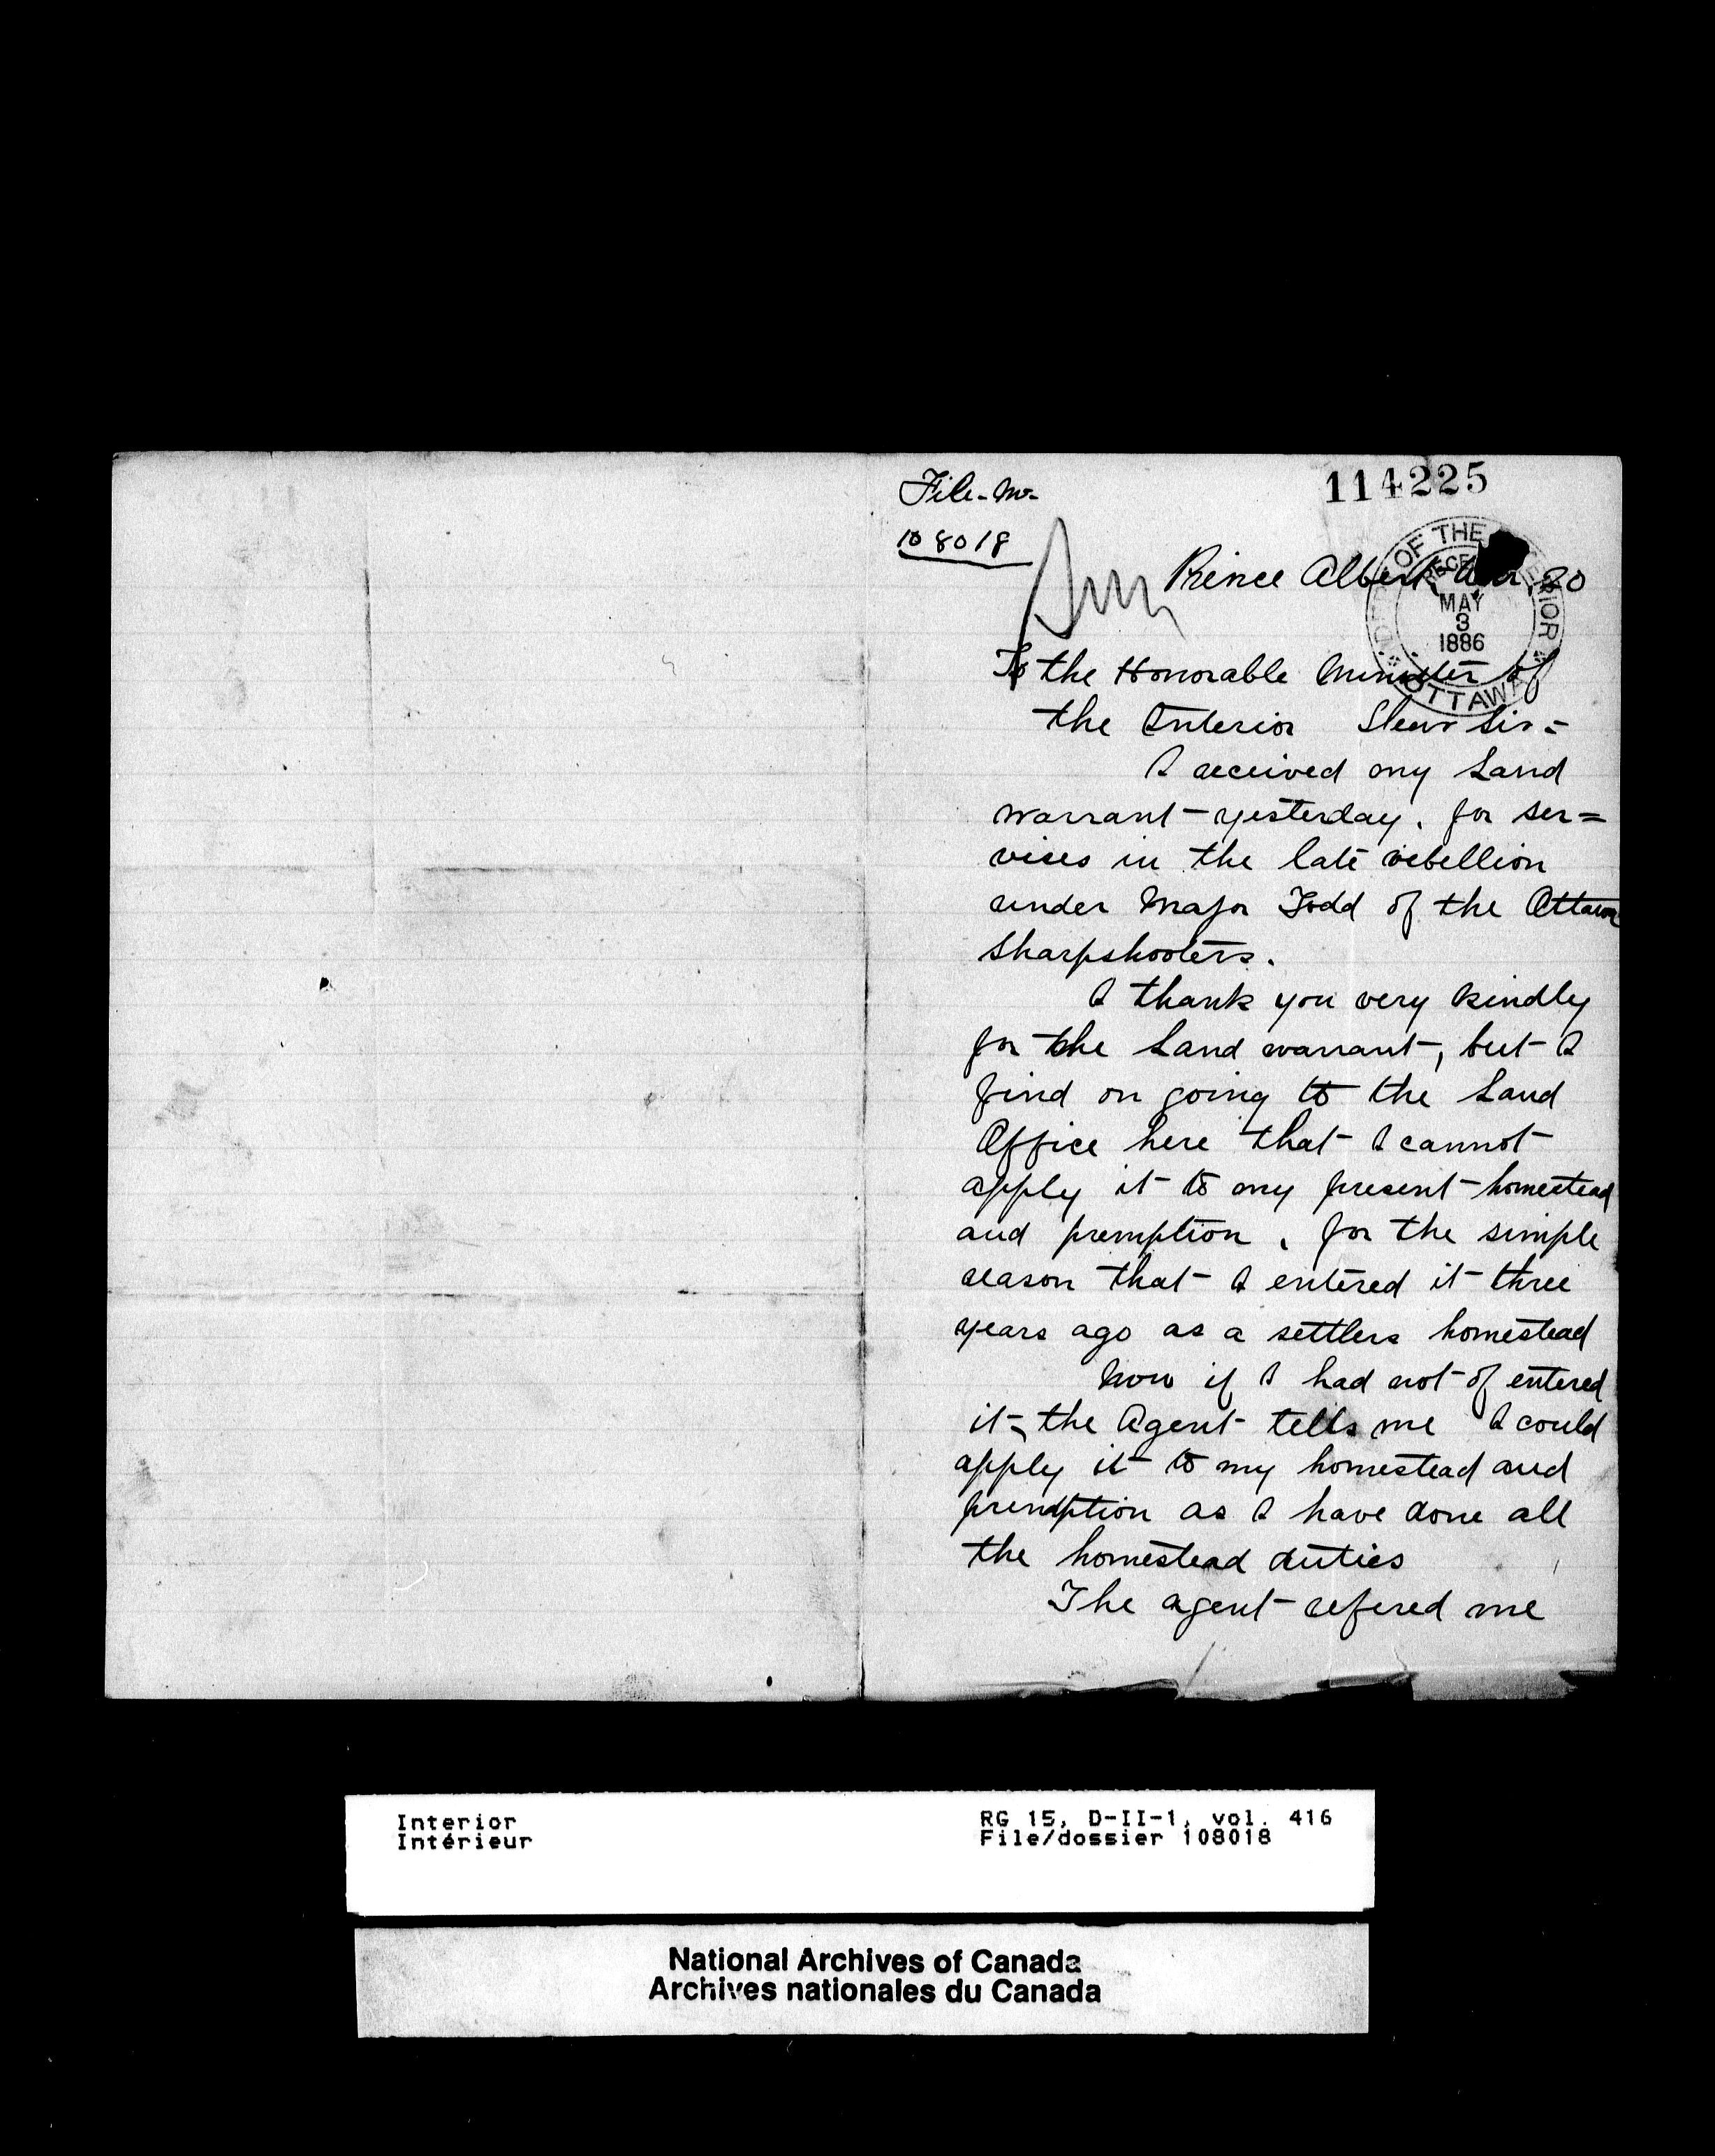 File No
108018
114225
DEPT OF THE INTERIOR
MAY
3
1886
OTTAWA
Prince Albert Apr, 20
To the Honorable Minister of
the Interior Dear Sir =
I received my Land
warrant yesterday. for ser=
vises in the late rebellion
under Major Todd of the Ottawa
Sharpshooters.
I thank you very kindly
for the Land warrant, but I
find on going to the Land
Office here that I cannot
apply it to my present homestead
and premption, for the simple
reason that I entered it three
years ago as a settlers homestead
Now if I had not of entered
it, the Agent tells me I could
apply it to my homestead and
premption as I have done all
the homestead duties
The agent refered me
Interior
Intérieur
RG 15, D-II-1, vol. 416
File/dossier 108018
National Archives of Canada
Archives nationales du Canada